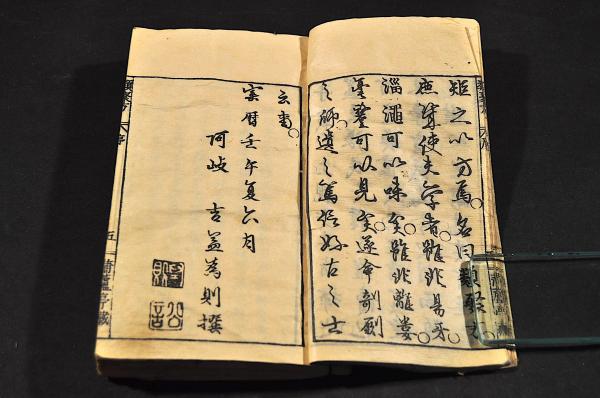 矩之以方焉。名曰類聚方。
庶幾使夫學者。雖非易牙。
淄澠可以味矣。雖非離婁。
毫釐可以見矣。遂命剞劂
之師。遺之篤信好古之士
云爾。
寶曆壬午夏六月
阿岐 吉益為則撰
公言
類聚方 序
五